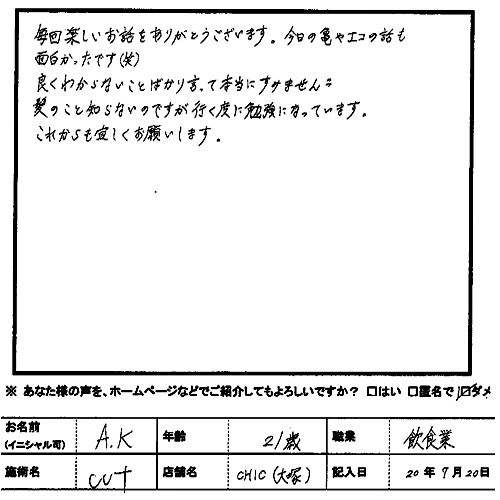 毎回楽しいお話をありがとうございます。今日の亀やエコの話も
面白かったです(笑)
良くわからないことばかり言って本当にすみません
髪のこと知らないのですが行く度に勉強になっています。
これからも宜しくお願いします。
※ あなた様の声を、ホームページなどでご紹介してもよろしいですか? □はい □匿名で ☑ダメ
お名前 (イニシャル可) A.K 年齢 21歳 職業 飲食業
施術名 cut 店舗名 CHIC (大塚) 記入日 20年 9月 20日